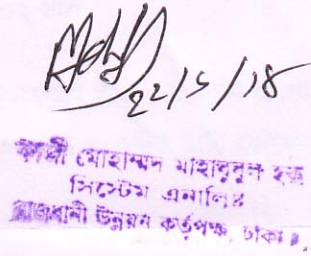 22/5/18
কাজী মোহাম্মদ মাহাবুবুল হক
সিস্টেম এনালিষ্ট
রাজধানী উন্নয়ন কর্তৃপক্ষ, ঢাকা।